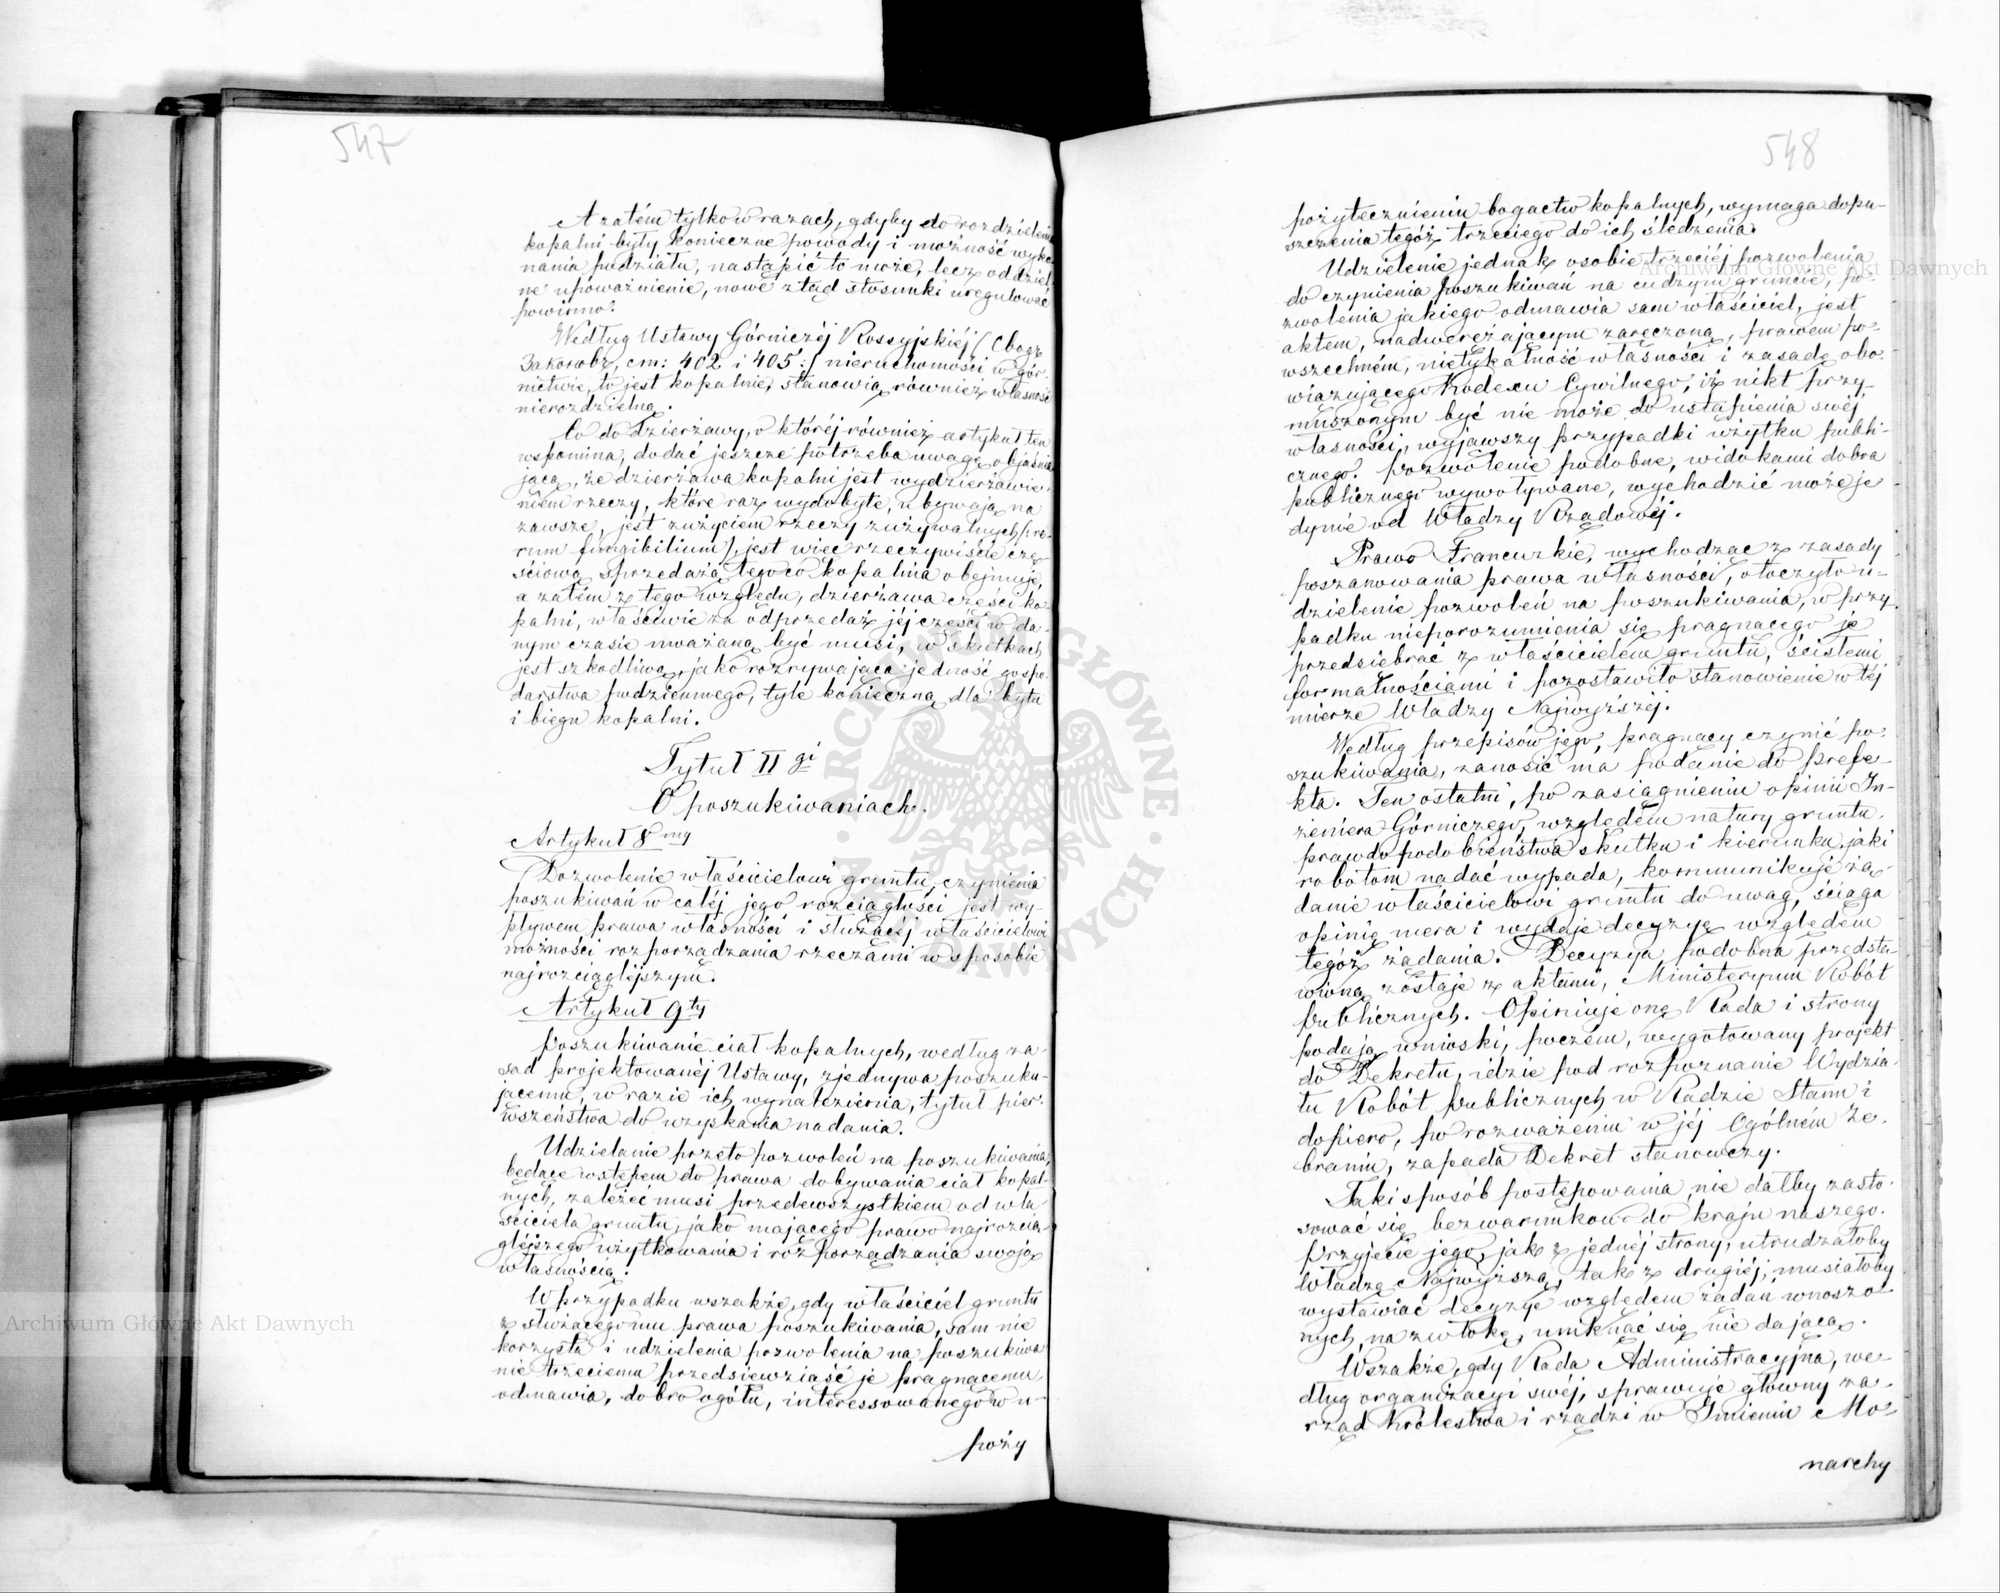 547
A zatém tylko w razach, gdyby do rozdzielenia
kopalni były konieczne powody i możność wyko-
nania podziału, nastąpić to może, lecz oddziel-
ne upoważnienie, nowe ztąd stosunki uregulować
powinno.
Według Ustawy Górniczéj Rossyjskiéj /:Сводъ
Законовъ, cm: 402 i 405:/ nieruchomości w gór-
nictwie, to jest kopalnie, stanowią również własność
nierozdzielną.
Co do dzierżawy, o któréj również artykuł ten
wspomina, dodać jeszcze potrzeba uwagę objaśnia-
jącą, że dzierżawa kopalni jest wydzierżawie-
niem rzeczy, które raz wydobyte, ubywają na
zawsze, jest zużyciem rzeczy zużywalnych /:re-
rum fungibilium:/, jest więc rzeczywiście czę-
ściową sprzedażą tego co kopalnia obejmuje,
a zatém z tego względu, dzierżawa części ko-
palni, właściwie za odprzedaż jéj części w da-
nym czasie uważaną być musi, w skutkach
jest szkodliwą, jako rozrywająca jedność gospo-
darstwa podziemnego, tyle konieczną dla bytu
i biegu kopalni.
Tytuł II gi
O poszukiwaniach.
Artykuł 8my
Dozwolenie właścicielowi gruntu, czynienia
poszukiwań w całéj jego rozciągłości jest wy-
pływem prawa własności i służącéj właścicielowi
możności rozporządzania rzeczami w sposobie
najrozciąglejszym.
Artykuł 9ty
Poszukiwanie ciał kopalnych, według za-
sad projektowanéj Ustawy, zjednywa poszuku-
jącemu, w razie ich wynalezienia, tytuł pier-
wszeństwa do uzyskania nadania.
Udzielanie przeto pozwoleń na poszukiwania,
będące wstępem do prawa dobywania ciał kopal-
nych, zależeć musi przedewszystkiem od wła-
ściciela gruntu, jako mającego prawo najrozcią-
glejszego użytkowania i rozporządzania swoją
własnością.
W przypadku wszakże, gdy właściciel gruntu
z służącego mu prawa poszukiwania, sam nie
korzysta i udzielenia pozwolenia na poszukiwa-
nie trzeciemu przedsięwziąść je pragnącemu
odmawia, dobro ogółu, interessowanego w u-
poży
548
pożytecznieniu bogactw kopalnych, wymaga dopu-
szczenia tegóż trzeciego do ich śledzenia.
Udzielenie jednak osobie trzeciéj pozwolenia
do czynienia poszukiwań na cudzym gruncie, po-
zwolenia jakiego odmawia sam właściciel, jest
aktem, nadwerężającym zaręczoną, prawem po-
wszechném, nietykalność własności i zasadę obo-
wiązującego Kodexu Cywilnego, iż nikt przy-
muszonym być nie może do ustąpienia swéj
własności, wyjąwszy przypadki użytku publi-
cznego. Pozwolenie podobne, widokami dobra
publicznego wywoływane, wychodzić może je-
dynie od Władzy Rządowéj.
Prawo Francuzkie, wychodząc z zasady
poszanowania prawa własności, otoczyło u-
dzielenie pozwoleń na poszukiwania, w przy-
padku nieporozumienia się pragnącego je
przedsiebrać z właścicielem gruntu, ścisłemi
formalnościami i pozostawiło stanowienie w téj
mierze Władzy Najwyższéj.
Według przepisów jego, pragnący czynić po-
szukiwania, zanosić ma podanie do prefe-
kta. Ten ostatni, po zasiągnieniu opinii In-
żeniera Górniczego, względem natury gruntu,
prawdopodobieństwa skutku i kierunku, jaki
robotom nadać wypada, kommunikuje żą-
danie właścicielowi gruntu do uwag, ściąga
opinię mera i wydaje decyzyę względem
tegóż żądania. Decyzya podobna przedsta-
wioną zostaje z aktami, Ministeryum Robót
Publicznych. Opiniuje onę Rada i strony
podają wnioski, poczém, wygotowany projekt
do Dekretu, idzie pod rozpoznanie Wydzia-
łu Robót Publicznych w Radzie Stanu i
dopiero, po rozważeniu w jéj Ogólném Ze-
braniu, zapada Dekret stanowczy.
Taki sposób postępowania, nie dałby zasto-
sować się bezwarunkowo do kraju naszego.
Przyjęcie jego, jak z jednéj strony, utrudzałoby
Władzę Najwyższą, tak z drugiéj, musiałoby
wystawiać decyzye względem żądań wnoszo-
nych, na zwłokę, uniknąć się nie dającą.
Wszakże, gdy Rada Administracyjna, we-
dług organizacyi swéj, sprawuje główny za-
rząd Królestwa i rządzi w Imieniu Mo-
narchy